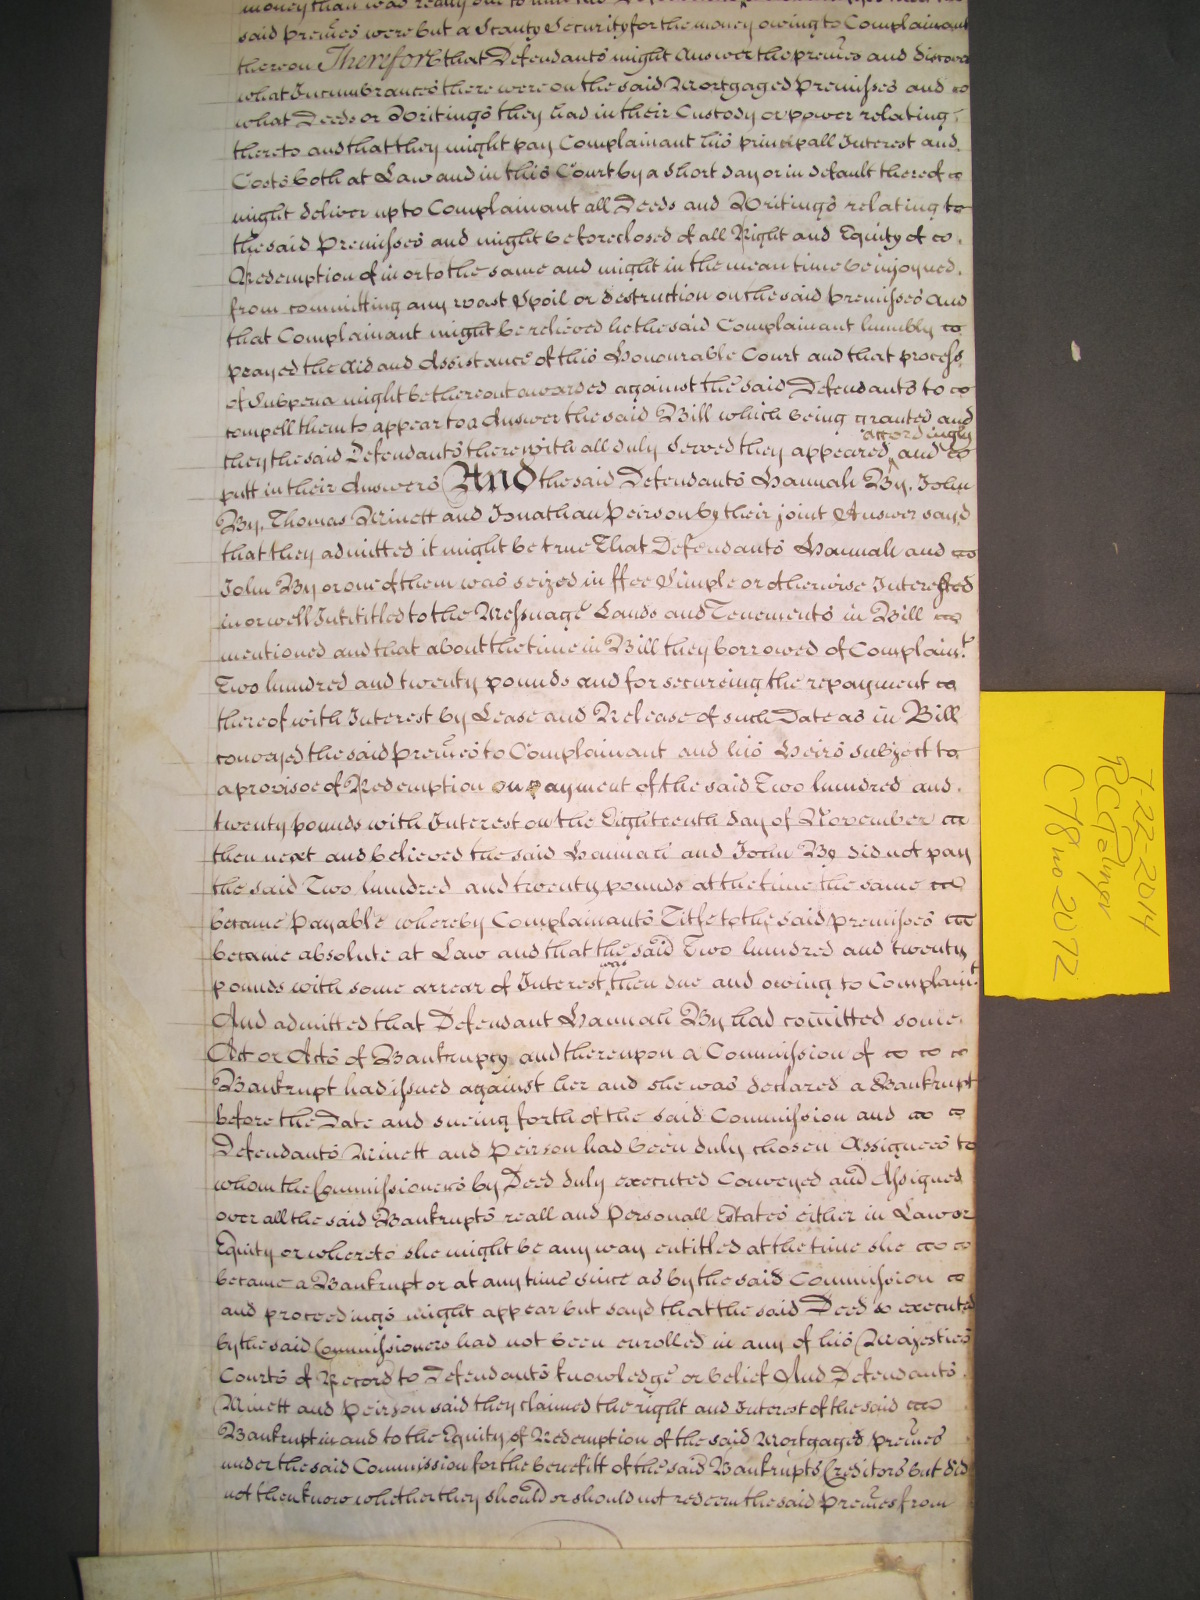 money than was really due to him the
said premes were but a Scanty Security for the money owing to Complainant
thereon Therefore that Defendants might Answer the premes and discover
what Incumbrances there were on the said Mortgaged Premisses and
what Deeds or Writings they had in their Custody or power relating
thereto and that they might pay Complainant his principall Interest and
Costs both at Law and in this Court by a short day or in default thereof
might deliver up to Complainant all Deeds and Writings relating to
the said Premisses and might be foreclosed of all Right and Equity of
Redemption of in or to the same and might in the mean time be injoyned
from committing any wast Spoil or destruction on the said Premisses and
that Complainant might be relieved he the said Complainant humbly
prayed the Aid and Assistance of this Honourable Court and that process
of Subpena might be thereout awarded against the said Defendants to
compell them to appear to a Answer the said Bill which being granted and
they the said Defendants therewith all duly Served they appeared accordingly and
putt in their Answers And the said Defendants Hannah By, John
By, Thomas Minett and Jonathan Peirson by their joint Answer sayd
that they admitted it might be true That Defendants Hannah and
John By or one of them was seized in ffee Simple or otherwise Interessed
in or well Intitled to the Messuage Lands and Tenements in Bill
mentioned and that about the time in Bill they borrowed of Complaint
Two hundred and twenty pounds and for secureing the repayment
thereof with Interest by Lease and Release of such Date as in Bill
conveyed the said Premes to Complainant and his Heirs subject to
a provisoe of Redemption on payment of the said Two hundred and
twenty pounds with Interest on the Eighteenth day of November
then next and believed the said Hannah and John By did not pay
the said Two hundred and twenty pounds at the time the same
became Payable whereby Complainants Title to the said Premisses
became absolute at Law and that the said Two hundred and twenty
pounds with some arrear of Interest was then due and owing to Complaint
And admitted that Defendant Hannah By had comitted some
Act or Acts of Bankrupcy and thereupon a Commission of
Bankrupt had issued against her and she was declared a Bankrupt
before the Date and sueing forth of the said Commission and
Defendants Minett and Peirson had been duly chosen Assignees to
whom the Commissioners by Deed duly executed Conveyed and Assigned
over all the said Bankrupts reall and Personall Estates either in Law or
Equity or whereto she might be any way entitled at the time she
became a Bankrupt or at any time since as by the said Commission
and proceedings might appear but sayd that the said Deed so executed
by the said Commissioners had not been enrolled in any of his Majesties
Courts of Record to Defendants knowledge or belief And Defendants
Minett and Peirson said they claimed the right and Interest of the said
Bankrupt in and to the Equity of Redemption of the said Mortgaged Premes
under the said Commission for the benefitt of the said Bankrupts Creditors but did
not then know whether they should or should not redeem the said Premes from
7-22-2014
C78 no 2072